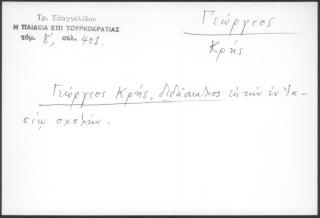 Τρ. Εὐαγγελίδου
Η ΠΑΙΔΕΙΑ ΕΠΙ ΤΟΥΡΚΟΚΡΑΤΙΑΣ
τόμ. β', σελ. 401.
Γεώργιος
Κρής
Γεώργιος Κρής, διδάσκαλος εἰς τὴν ἐν Ἰα-
σίῳ σχολήν.